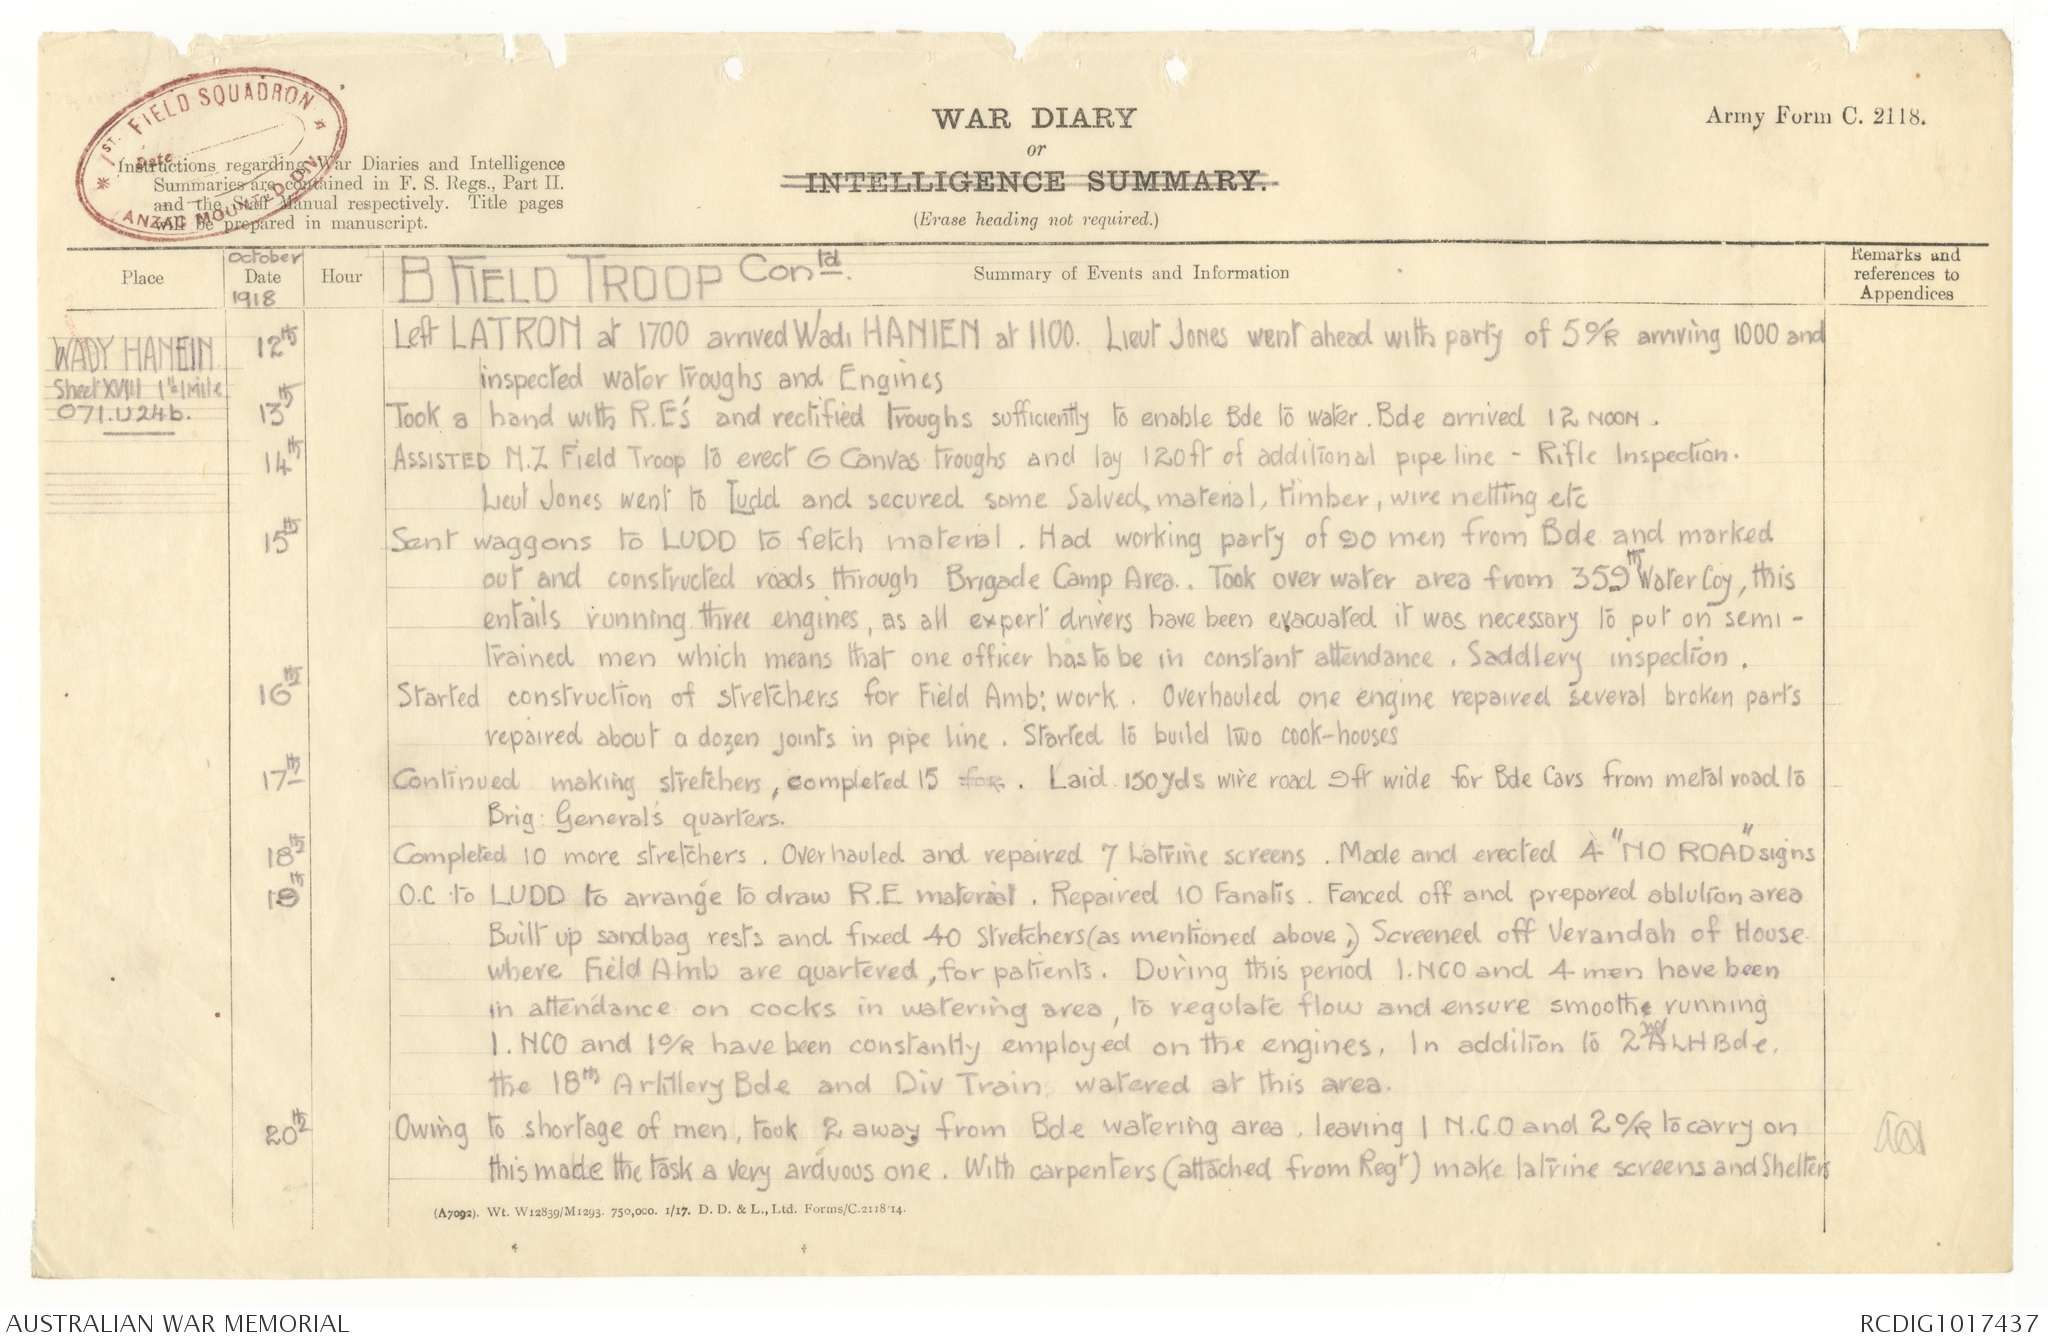 1ST. FIELD SQUADRON
Date
ANZAC MOUNTED DIV.
Instructions regarding War Diaries and Intelligence
Summaries are contained in F. S. Regs., Part II.
and the Staff Manual respectively. Title pages
will be prepared in manuscript.
WAR DIARY
or
INTELLIGENCE SUMMARY.
(Erase heading not required.)
Army Form C. 2118.
Place
October
Date
1918
Hour
B FIELD TROOP Contd.
Summary of Events and Information
Remarks and
references to
Appendices
WADY HANEIN
Sheet XVIII 1" to 1 Mile
071.U24b.
12th Left LATRON at 1700 arrived Wadi HANIEN at 1100. Lieut Jones went ahead with party of 5 O/R arriving 1000 and
inspected water troughs and Engines
13th Took a hand with R.E's and rectified troughs sufficiently to enable Bde to water. Bde arrived 12 NOON.
14th ASSISTED N.Z Field Troop to erect 6 Canvas troughs and lay 120ft of additional pipe line - Rifle Inspection.
Lieut Jones went to Ludd and secured some Salved, material, timber, wire netting etc
15th Sent waggons to LUDD to fetch material. Had working party of 20 men from Bde and marked
out and constructed roads through Brigade Camp Area. Took over water area from 359th Water Coy, this
entails running three engines, as all expert drivers have been evacuated it was necessary to put on semi-
trained men which means that one officer has to be in constant attendance. Saddlery inspection.
16th Started construction of stretchers for Field Amb: work. Overhauled one engine repaired several broken parts
repaired about a dozen joints in pipe line. Started to build two cook-houses
17th Continued making stretchers, completed 15 for. Laid 150yds wire road 9ft wide for Bde Cars from metal road to
Brig: General's quarters.
18th Completed 10 more stretchers. Overhauled and repaired 7 Latrine screens. Made and erected 4 "NO ROAD" signs
19th O.C to LUDD to arrange to draw R.E material. Repaired 10 Fanatis. Fenced off and prepared ablution area
Built up sandbag rests and fixed 40 stretchers (as mentioned above,) Screened off Verandah of House
where Field Amb are quartered, for patients. During this period 1. NCO and 4 men have been
in attendance on cocks in watering area, to regulate flow and ensure smoothe running
1. NCO and 1 O/R have been constantly employed on the engines. In addition to 2nd ALH Bde,
the 18th Artillery Bde and Div Train watered at this area.
20th Owing to shortage of men, took 2 away from Bde watering area, leaving 1 N.C.O and 2 O/R to carry on
this made the task a very arduous one. With carpenters (attached from Regt) make latrine screens and Shelters
(A7092). Wt. W12839/M1293. 750,000. 1/17. D. D. & L., Ltd. Forms/C.2118/14.
AUSTRALIAN WAR MEMORIAL
RCDIG1017437